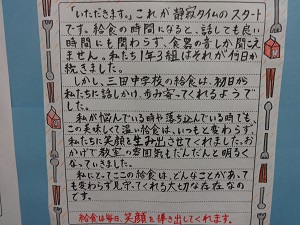 「いただきます。」これが静寂タイムのスタート
です。給食の時間になると、話しても良い
時間にも関わらず、食器の音しか聞こえ
ません。私たち1年3組はそれが何日か
続きました。
しかし、三田中学校の給食は、初日から
私たちに話しかけ、歩み寄ってくれるようで
した。
私が悩んでいる時や落ち込んでいる時でも、
この美味しくて温い給食は、いつもと変わらず、
私たちに笑顔を生み出させてくれました。お
かげで教室の雰囲気もだんだんと明るく
なっていきました。
私にとってここの給食は、どんなことがあって
も変わらず見守ってくれる大切な存在なの
です。
給食は毎日、笑顔を導き出してくれます。